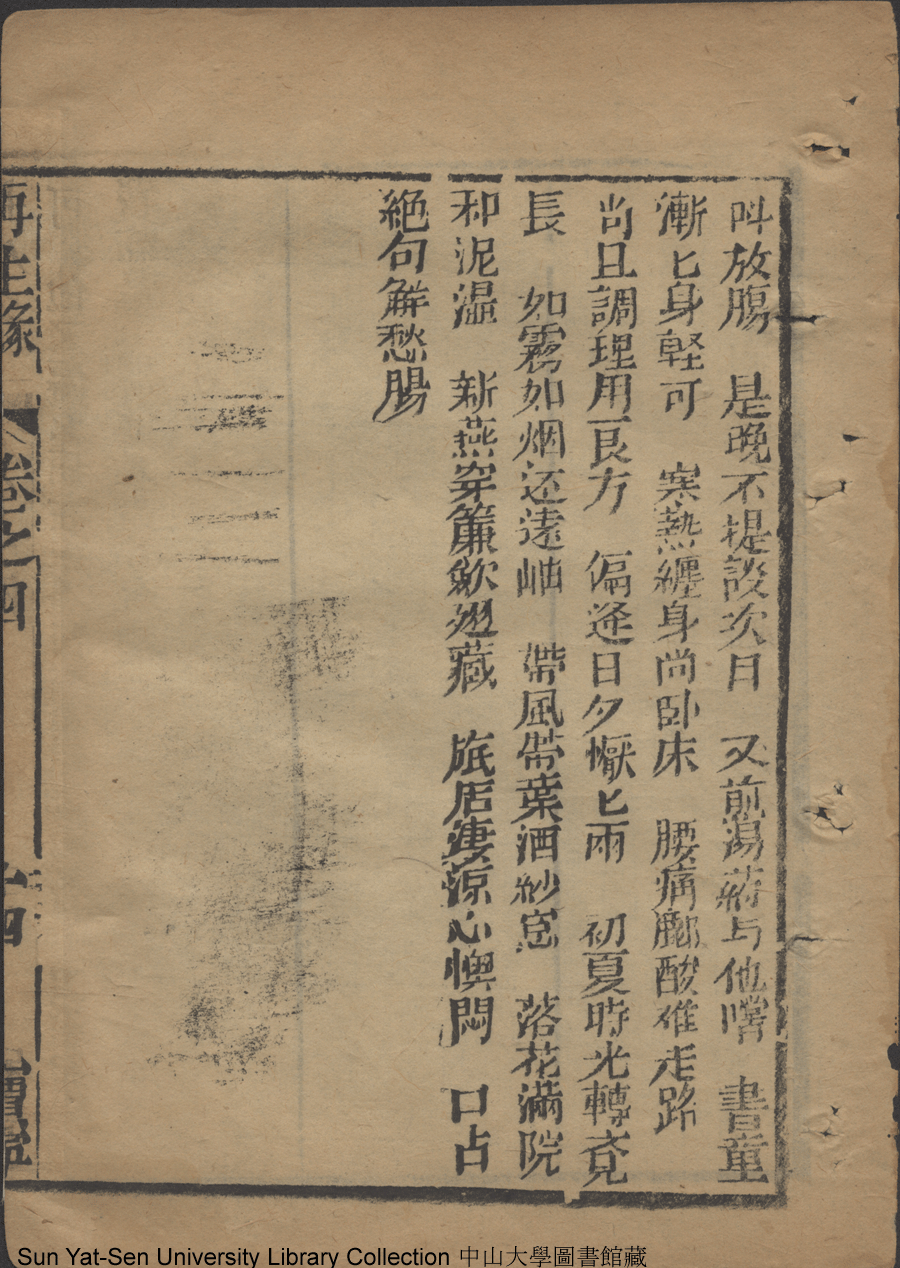 叫放膓　是晩不提談次日　又煎湯葯与他嚐　書童
漸匕身軽可　寒熱纏身尚卧床　腰痛脚酸难走路
尚且調理用良方　偏逢日夕懨匕雨　初夏時光轉竟
長　如霧如烟还遠岫　帶風帶葉洒紗窓　落花滿院
和泥温　新燕穿簾歛翅藏　旅店凄涼心懊悶　口占
絕句解愁腸
再生緣　卷之四
Sun Yat-Sen University Library Collection 中山大學圖書館藏